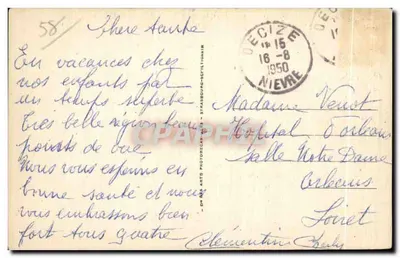 58
Chère tante
En vacances chez
nos enfants par
un temps superbe
Très belle région beaux
points de vue
Nous vous espérons en
bonne santé et nous
vous embrassons bien
fort tous quatre
Clémentine
DECIZE
15
16-8
1950
NIEVRE
Madame Venot
Hopital d'orléans
Salle Notre Dame
Orléans
Loiret